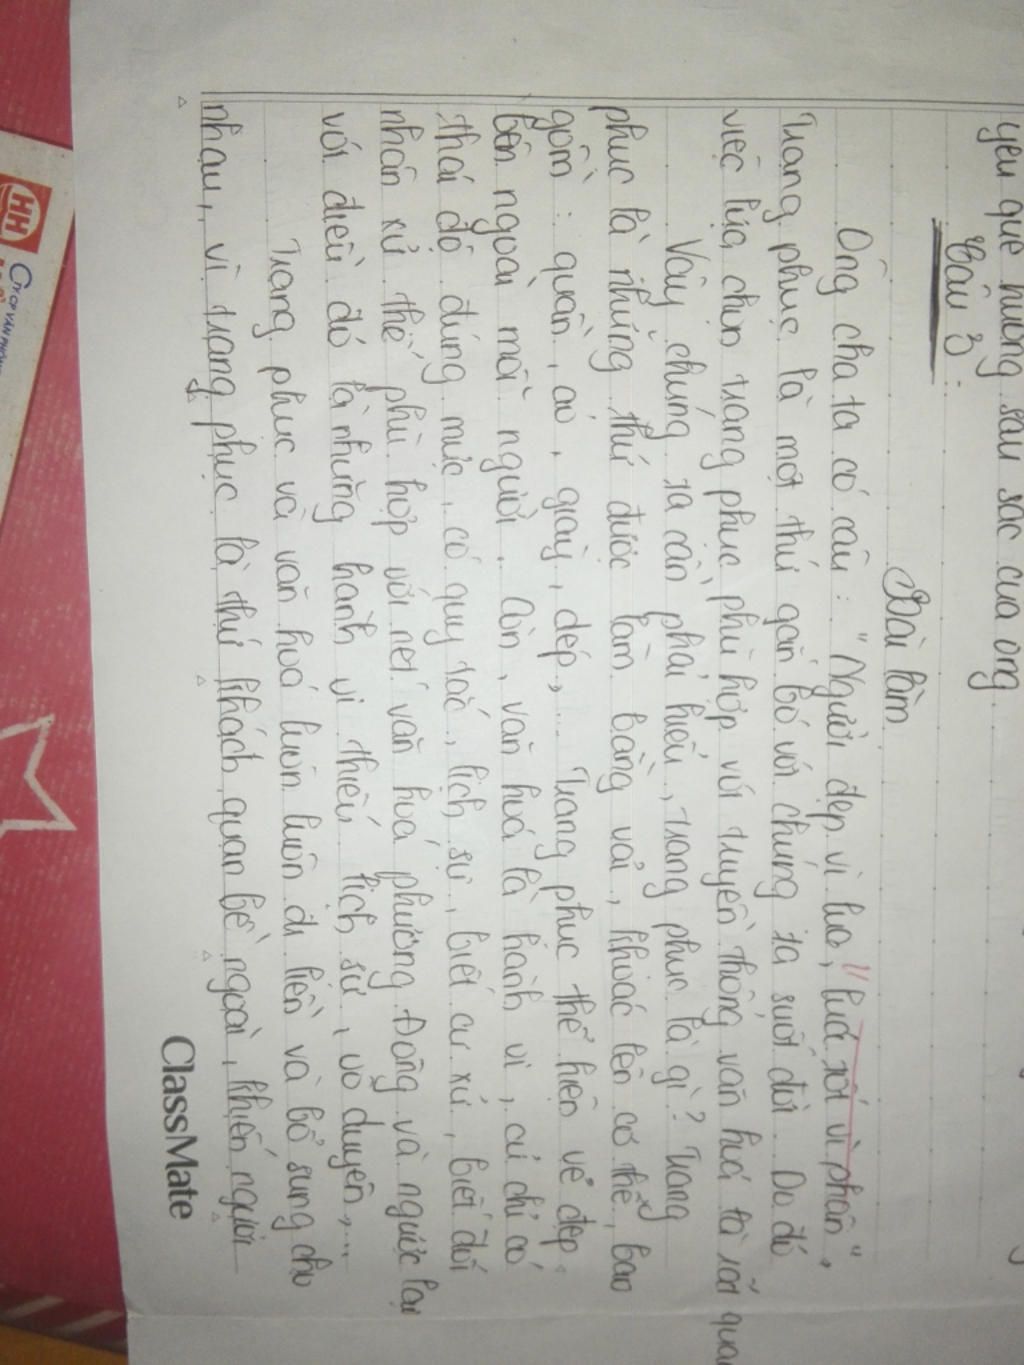 yêu quê hương sâu sắc của ông
Câu 3:
Bài làm
Ông cha ta có câu: "Người đẹp vì lụa, lúa tốt vì phân".
Trang phục là một thứ gắn bó với chúng ta suốt đời. Do đó
việc lựa chọn trang phục phù hợp với truyền thống văn hoá là rất quan
Vậy chúng ta cần phải hiểu, trang phục là gì? Trang
phục là những thứ được làm bằng vải, khoác lên cơ thể, bao
gồm: quần, áo, giày, dép,... Trang phục thể hiện vẻ đẹp
bên ngoài mỗi người. Còn, văn hoá là hành vi, cử chỉ có
thái độ đúng mực, có quy tắc, lịch sự, biết cư xử, biết đối
nhân xử thế phù hợp với nét văn hoá phương Đông và ngược lại
với điều đó là những hành vi thiếu lịch sử, vô duyên,...
Trang phục và văn hoá luôn luôn đi liền và bổ sung cho
nhau, vì trang phục là thứ khách quan bề ngoài, khiến người
ClassMate
HH
CTY CP VĂN PHÒNG